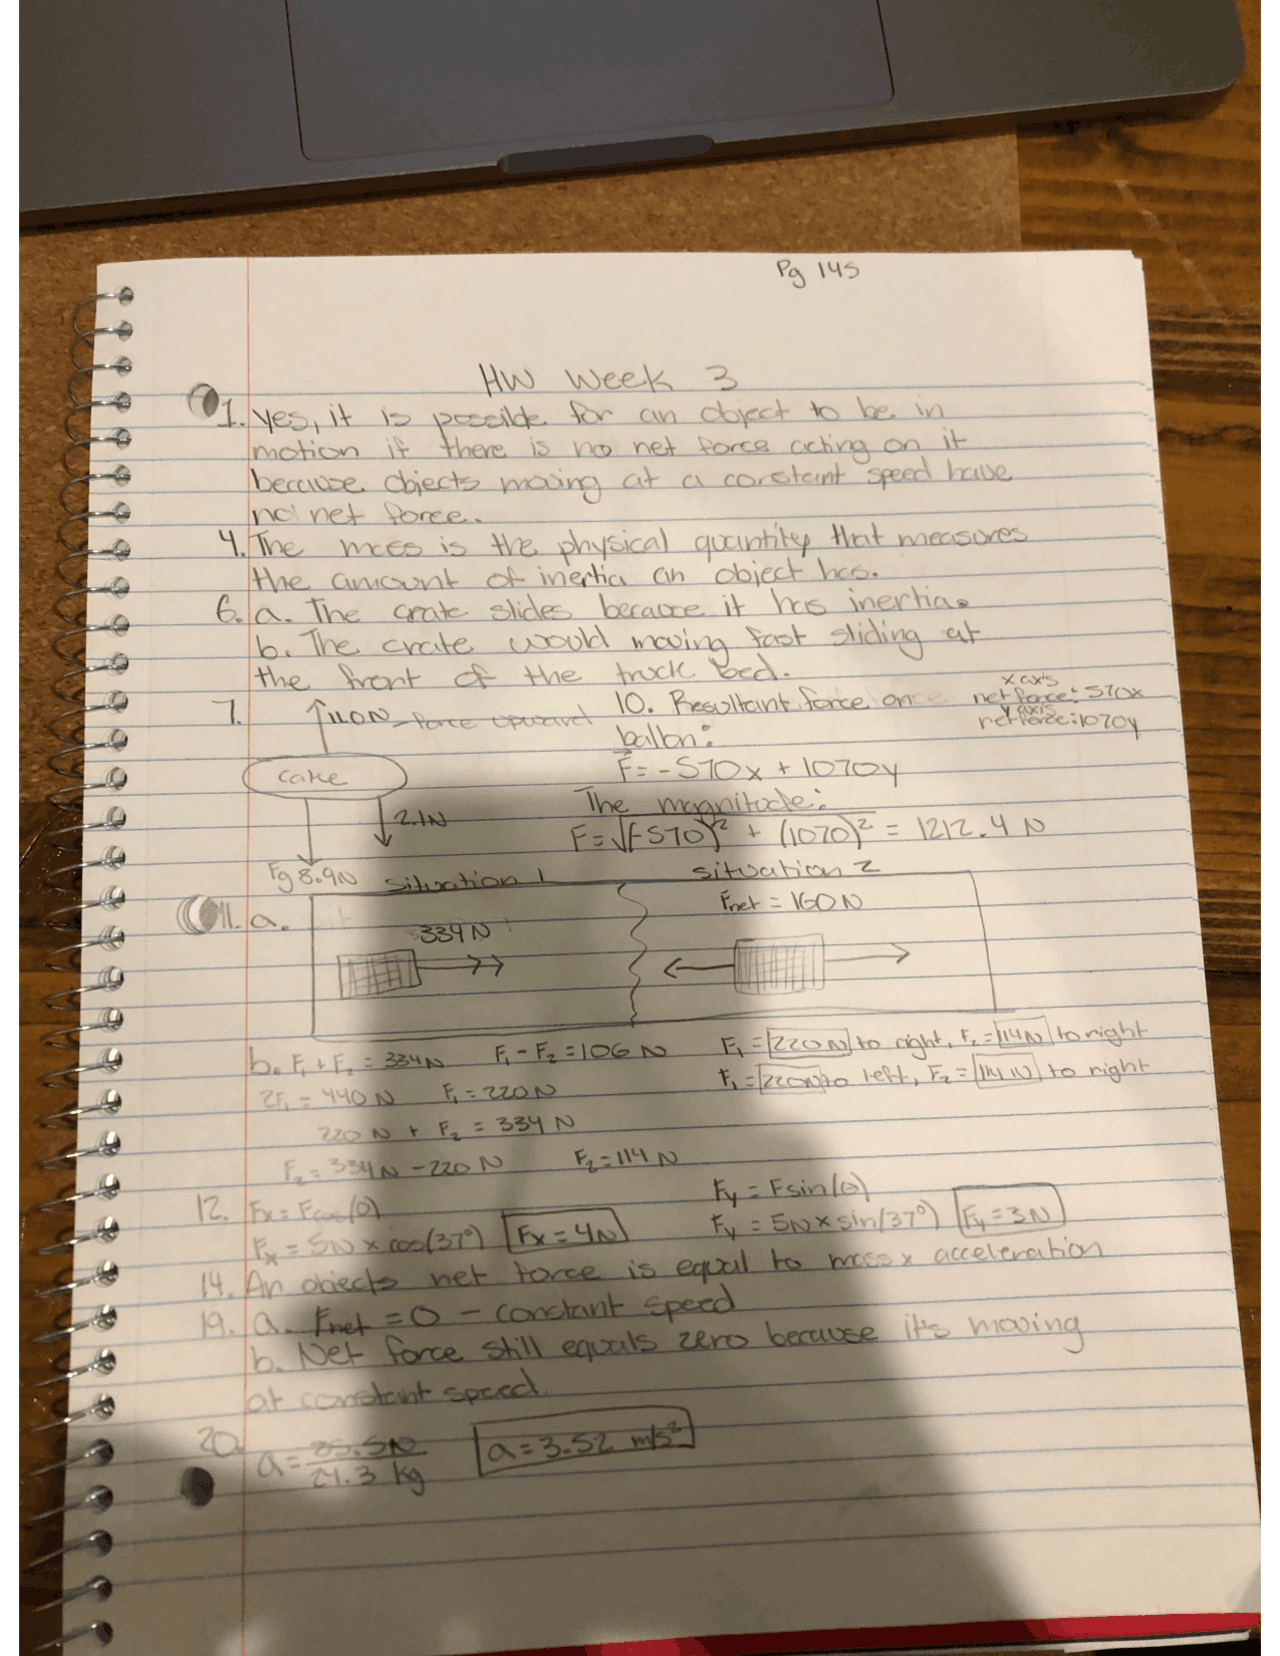 Pg 145
HW Week 3
1. yes, it is possible for an object to be in
motion if there is no net force acting on it
because objects moving at a constant speed have
no net force.
4. The mass is the physical quantity that measures
the amount of inertia an object has.
6. a. The crate slides because it has inertia.
b. The crate would moving fast sliding at
the front of the truck bed.
7.
11.0N - force upward
cake
2.1N
Fg 8.9N
10. Resultant force on
ballon:
x axis
net force: 570x
y axis
net force: 1070y
F = -570x + 1070y
The magnitude:
F = √(-570)² + (1070)² = 1212.4 N
11. a.
situation 1
334 N
situation 2
Fnet = 160 N
b. F₁ + F₂ = 334N F₁ - F₂ = 106 N
2F₁ = 440 N F₁ = 220N
220 N + F₂ = 334 N
F₂ = 334N - 220 N F₂ = 114 N
F₁ = 220N to right, F₂ = 114N to right
F₁ = 220N to left, F₂ = 114N to right
12. Fx = Fcos(θ) Fy = Fsin(θ)
Fx = 5N x cos(37°) Fx = 4N Fy = 5N x sin(37°) Fy = 3N
14. An objects net force is equal to mass x acceleration
19. a. Fnet = 0 - constant speed
b. Net force still equals zero because it's moving
at constant speed.
20. a = 85.5N / 24.3 kg a = 3.52 m/s²